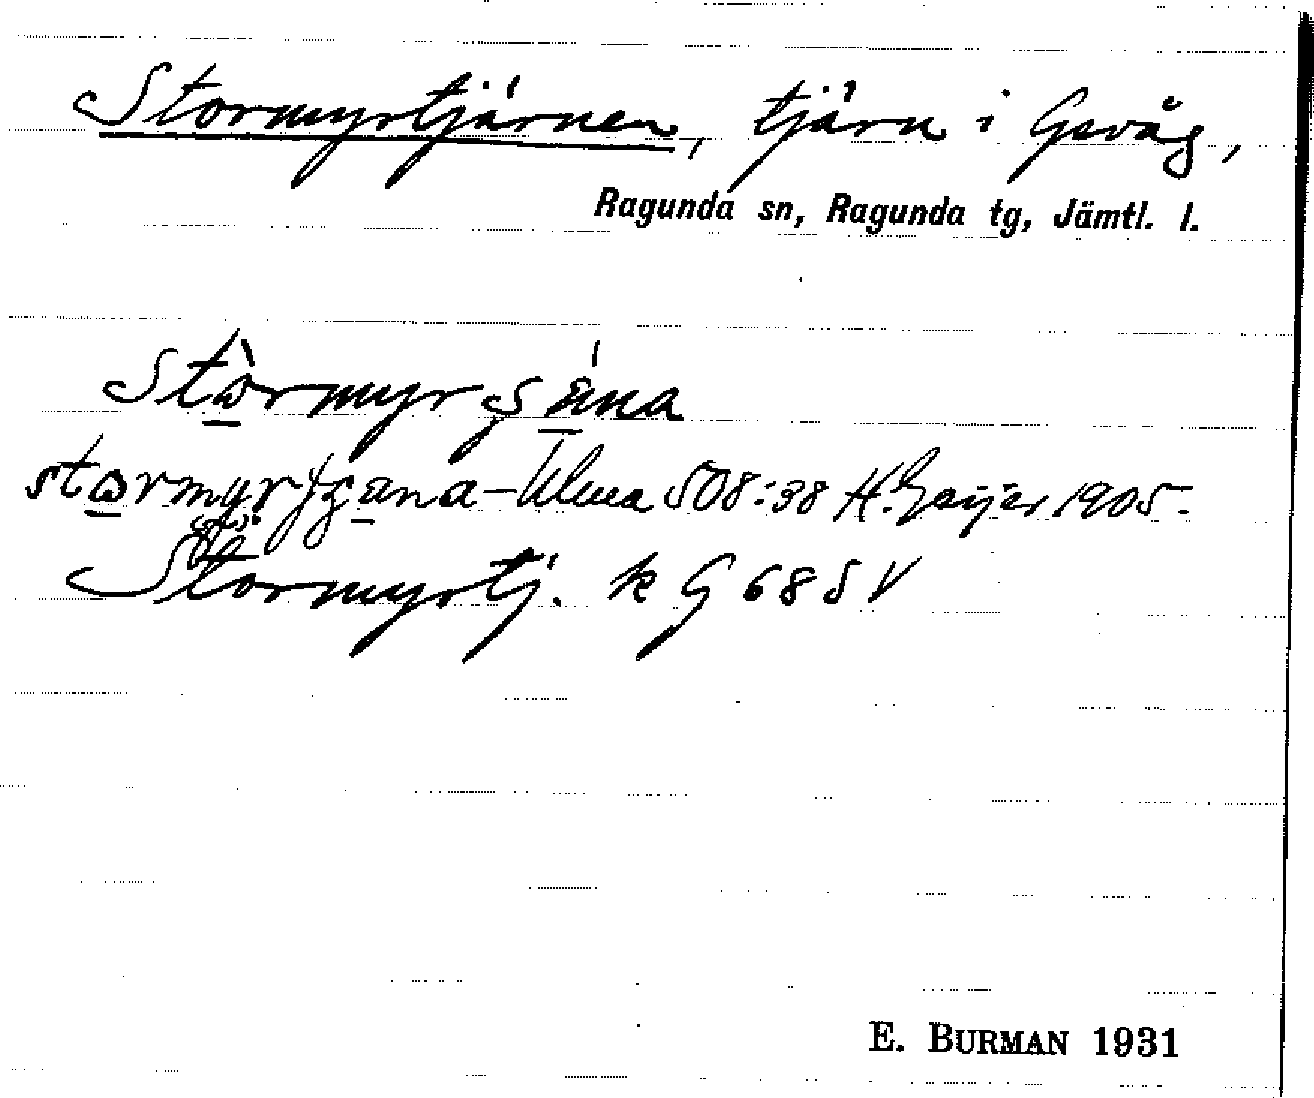 Stormyrtjärnen, tjärn i Gevåg,
Ragunda sn, Ragunda tg, Jämtl. l.
Stormyr
508:38 H. Geijer 1905.
Stormyrtj. k G 68 S V
E. BURMAN 1931